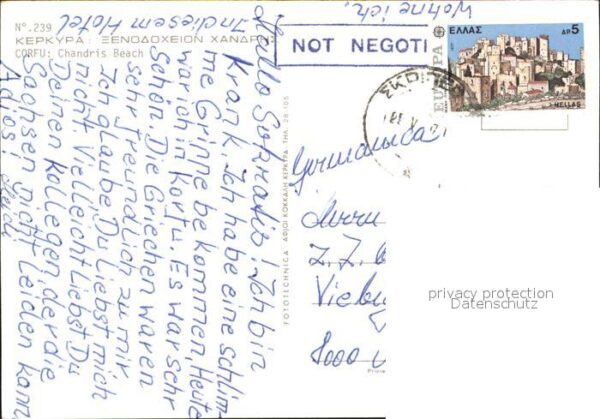 Nº.239
ΚΕΡΚΥΡΑ: ΞΕΝΟΔΟΧΕΙΟΝ ΧΑΝΔΡΗΣ
CORFU: Chandris Beach
Wohne ich.
In diesem Hotel
Hallo Sokradis! Ich bin
Krank. Ich habe eine schlim-
me Grinne bekommen. Heute
war ich in Korfu. Es war sehr
Schön. Die Griechen waren
sehr freundlich zu mir
Ich glaube Du liebst mich
nicht. Vielleicht liebst Du
Deinen Kollegen der die
Sachsen nicht leiden kann
Adios!
NOT NEGOTI
EUROPA
ΕΛΛΑΣ
ΔΡ 5
HELLAS
Germanica
Herrn
Z. Z.
8000
FOTOTECHNICA - ΑΦΙΟΙ ΚΟΚΚΑΛΗ ΚΕΡΚΥΡΑ ΤΗΛ. 28-105
privacy protection
Datenschutz